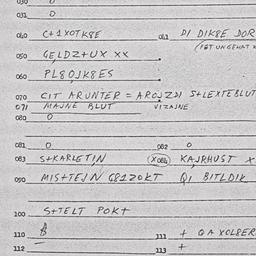 030 0
031 0
040 C+1XOTK8E 041 DI DIK8E DOR
050 GELDZ+UX XX
060 PL8OJK8ES
070 CIT ARUNTER = AROJZDI S+LEXTEBLUT
071 MAJNE BLUT VIZAJNE
080 0
081 0 082 0
083 S+KARLETIN X084 KAJRHUST X
090 MIS+TEJN G81ZOKT QI BITLDIK
100 S+TELT POK+
110 111 + QAXOL8ER
112 — 113 +